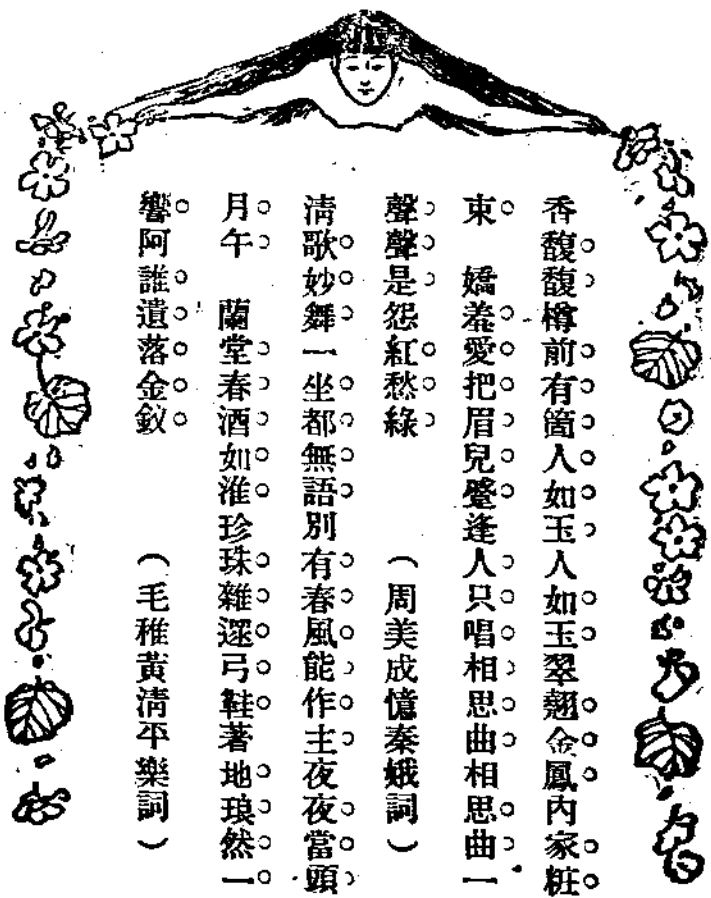 香馥馥樽前有箇人如玉人如玉翠翹金鳳內家粧
束　嬌羞愛把眉兒蹙逢人只唱相思曲相思曲一
聲聲是怨紅愁綠　（周美成憶秦娥詞）
淸歌妙舞一坐都無語別有春風能作主夜夜當頭
月午　蘭堂春酒如淮珍珠雜遝弓鞋著地琅然一
響阿誰遺落金釵　（毛稚黃淸平樂詞）